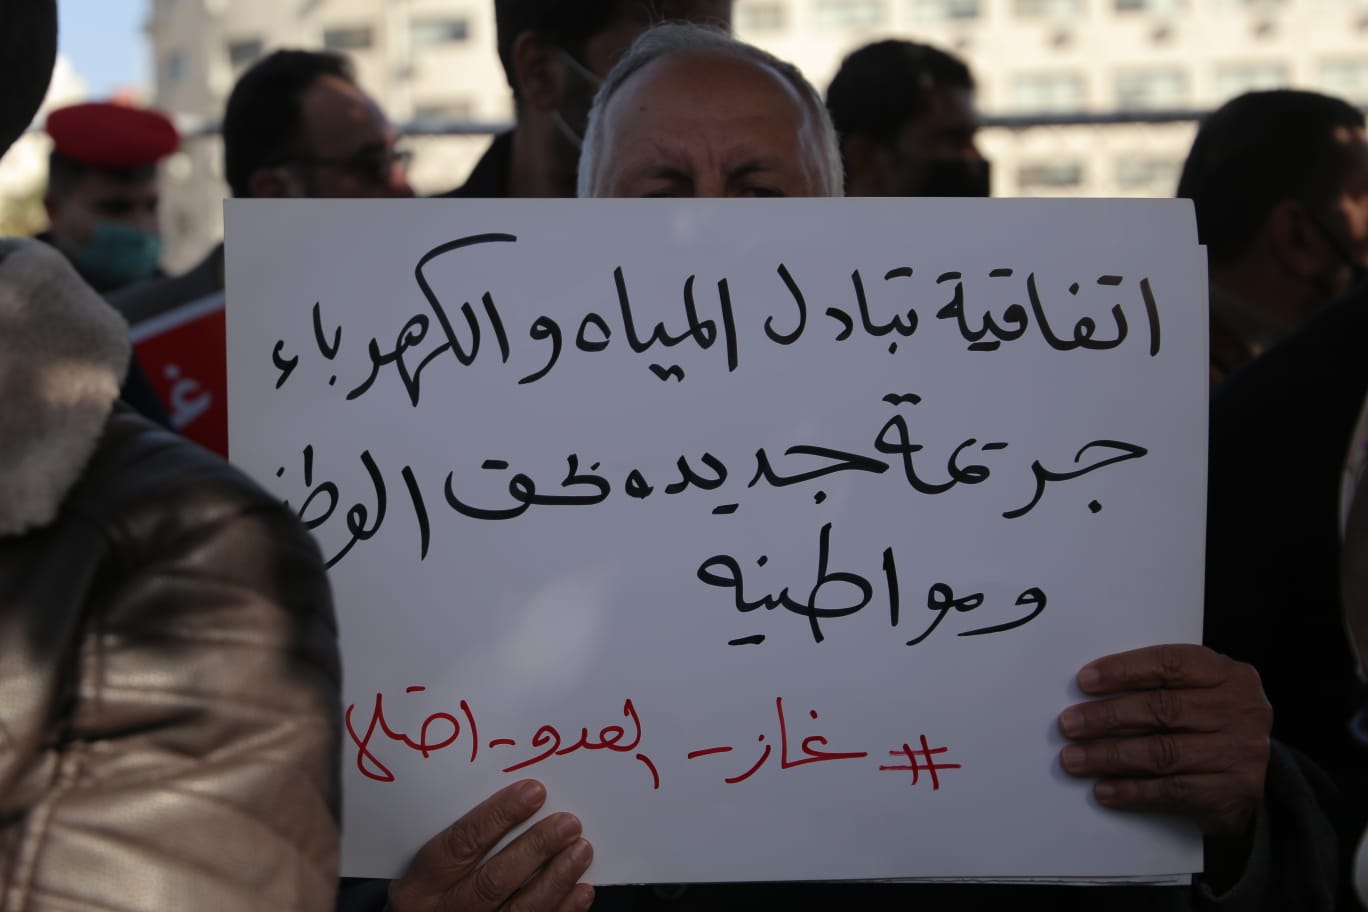 اتفاقية تبادل المياه والكهرباء
جريمة جديده بحق الوطن
ومواطنيه
#غاز_العدو_احتلال